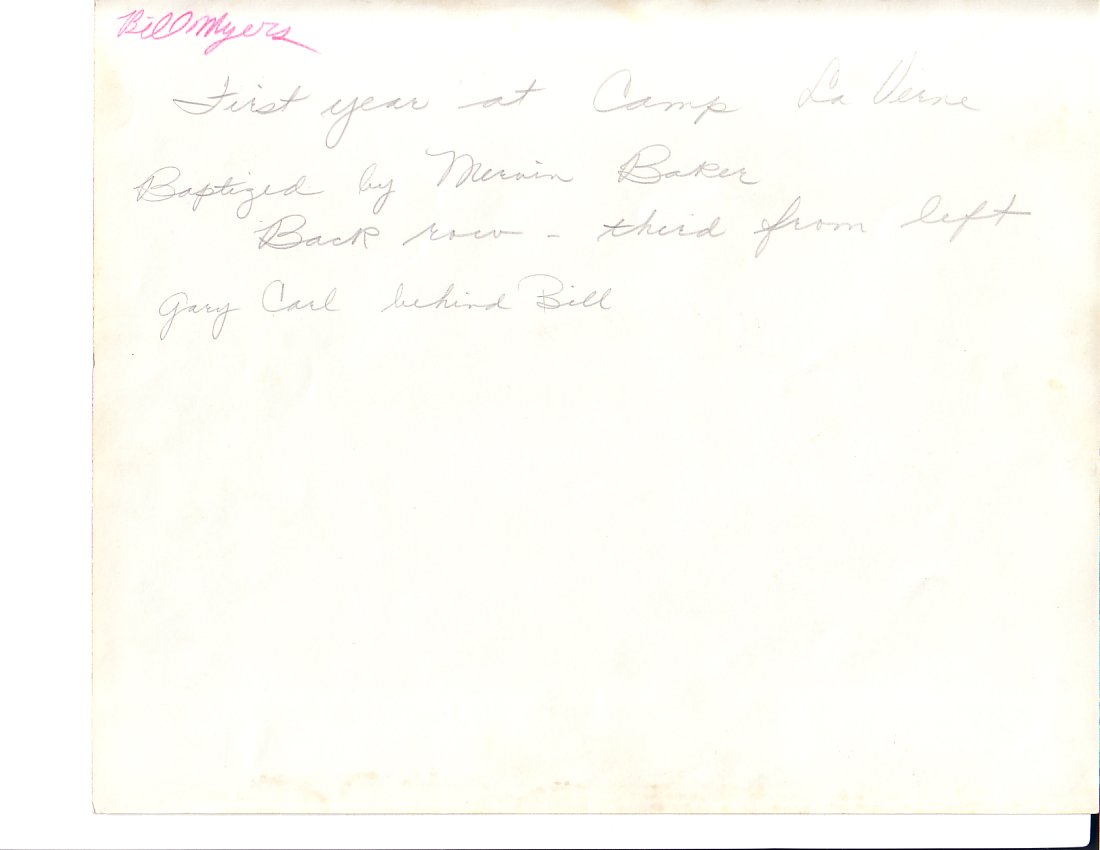 Bill Myers
First year at Camp La Verne
Baptized by Mervin Baker
Back row - third from left
Gary Carl behind Bill